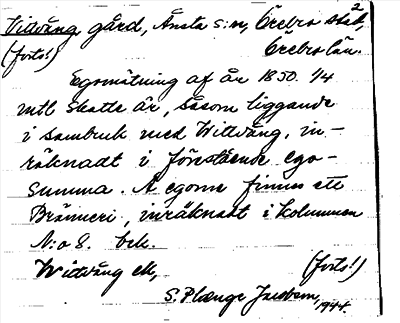 2
Vittvång gård, Ånsta s:n, Örebro stad,
(forts!) Örebro län.
Egomätning af År 1850. 1/4
mtl Skatte är, såsom liggande
i sambruk med Wittvång, in-
räknadt i förestående ego-
summa. Å egorne finnes ett
Bränneri, inräknadt i Kolumnen
N:o 8. beh.
Wittvång (forts!)
S. Plænge Jacobson, 1944.